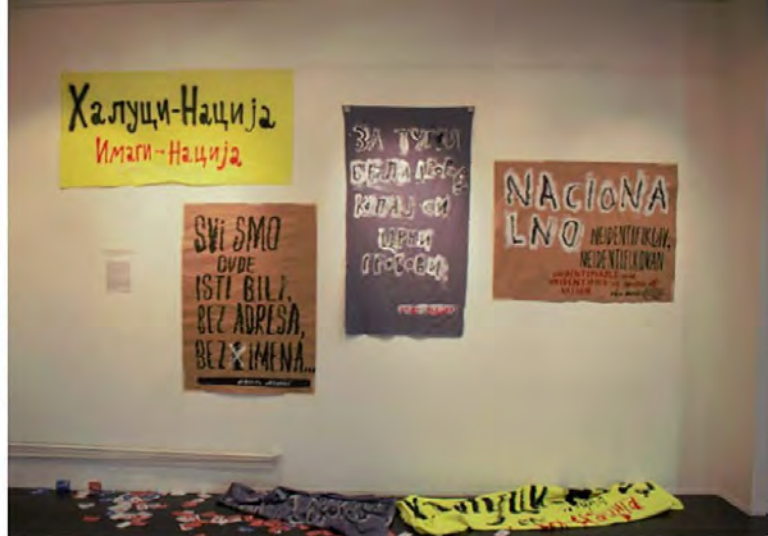 Халуци-Нација
Имаги-Нација
SVI SMO
OVDE
ISTI BILI,
BEZ ADRESA,
BEZ IMENA...
ЗА ТУЃИ
КОПАЈ СИ
ЦРНИ
ГРОБОВИ.
NACIONA
LNO NEIDENTIFIKLIV,
NEIDENTIFIKOVAN